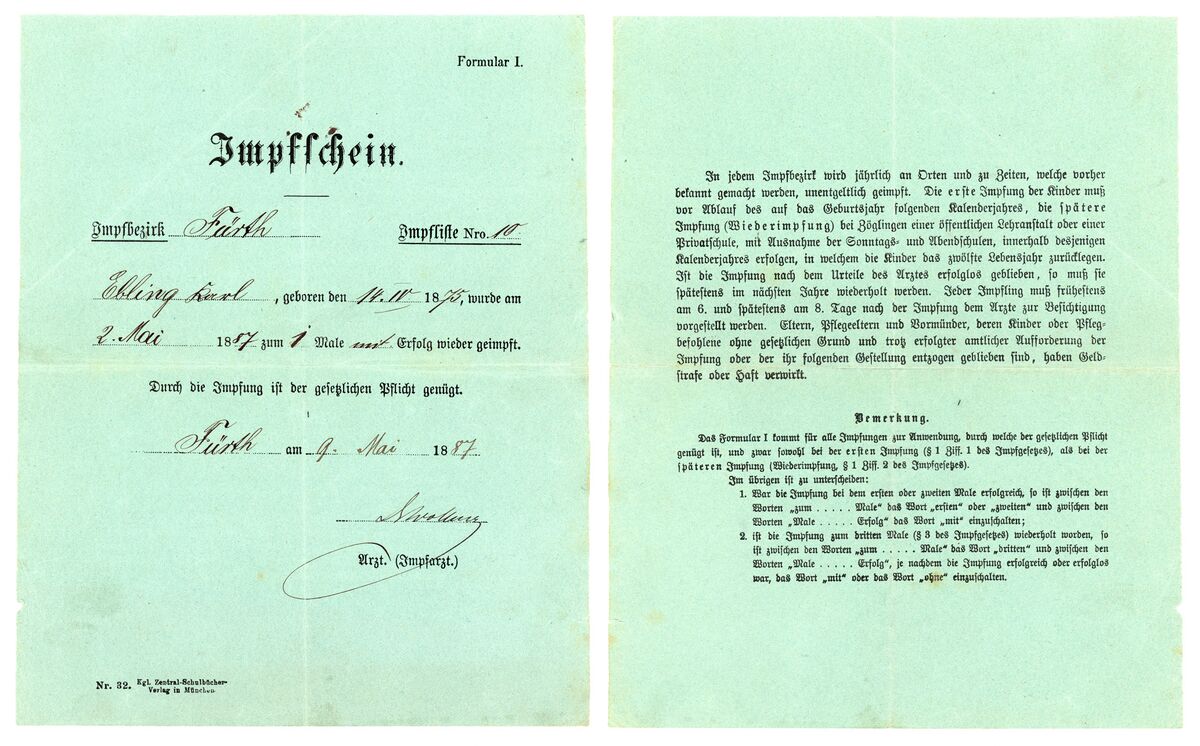 Formular I.
Impfschein.
Impfbezirk Fürth Impfliste Nro. 10
Ebling Karl, geboren den 14. IV 1875, wurde am
2. Mai 1887 zum 1 Male mit Erfolg wieder geimpft.
Durch die Impfung ist der gesetzlichen Pflicht genügt.
Fürth am 9. Mai 1887.
Arzt. (Impfarzt.)
Nr. 32. Kgl. Zentral-Schulbücher-
Verlag in München.
In jedem Impfbezirk wird jährlich an Orten und zu Zeiten, welche vorher
bekannt gemacht werden, unentgeltlich geimpft. Die erste Impfung der Kinder muß
vor Ablauf des auf das Geburtsjahr folgenden Kalenderjahres, die spätere
Impfung (Wiederimpfung) bei Zöglingen einer öffentlichen Lehranstalt oder einer
Privatschule, mit Ausnahme der Sonntags- und Abendschulen, innerhalb desjenigen
Kalenderjahres erfolgen, in welchem die Kinder das zwölfte Lebensjahr zurücklegen.
Ist die Impfung nach dem Urteile des Arztes erfolglos geblieben, so muß sie
spätestens im nächsten Jahre wiederholt werden. Jeder Impfling muß frühestens
am 6. und spätestens am 8. Tage nach der Impfung dem Arzte zur Besichtigung
vorgestellt werden. Eltern, Pflegeeltern und Vormünder, deren Kinder oder Pfleg-
befohlene ohne gesetzlichen Grund und trotz erfolgter amtlicher Aufforderung der
Impfung oder der ihr folgenden Gestellung entzogen geblieben sind, haben Geld-
strafe oder Haft verwirkt.
Bemerkung.
Das Formular I kommt für alle Impfungen zur Anwendung, durch welche der gesetzlichen Pflicht
genügt ist, und zwar sowohl bei der ersten Impfung (§ 1 Ziff. 1 des Impfgesetzes), als bei der
späteren Impfung (Wiederimpfung, § 1 Ziff. 2 des Impfgesetzes).
Im übrigen ist zu unterscheiden:
1. War die Impfung bei dem ersten oder zweiten Male erfolgreich, so ist zwischen den
Worten „zum . . . . . Male" das Wort „ersten" oder „zweiten" und zwischen den
Worten „Male . . . . . Erfolg" das Wort „mit" einzuschalten;
2. ist die Impfung zum dritten Male (§ 3 des Impfgesetzes) wiederholt worden, so
ist zwischen den Worten „zum . . . . . Male" das Wort „dritten" und zwischen den
Worten „Male . . . . . Erfolg", je nachdem die Impfung erfolgreich oder erfolglos
war, das Wort „mit" oder das Wort „ohne" einzuschalten.